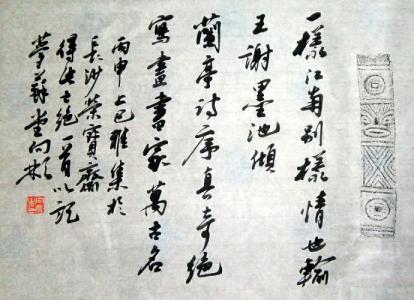 一樣江南別樣情也輸
王謝墨池傾
蘭亭詩序真奇絕
寫盡書家萬古名
丙申上巳雅集於
長沙榮寶齋
得此七絕一首以記
夢蘇堂向彬